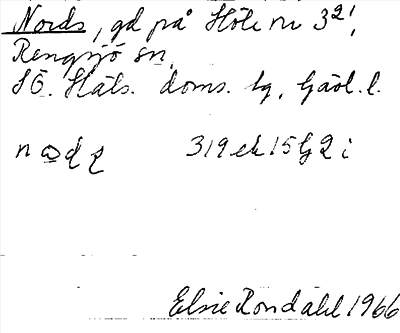 Nords, gd på Höle nr 3²',
Rengsjö sn,
SÖ. Häls. doms. tg, Gävl. l.
319 ek 15 G 2 i
Elsie Rondahl 1966